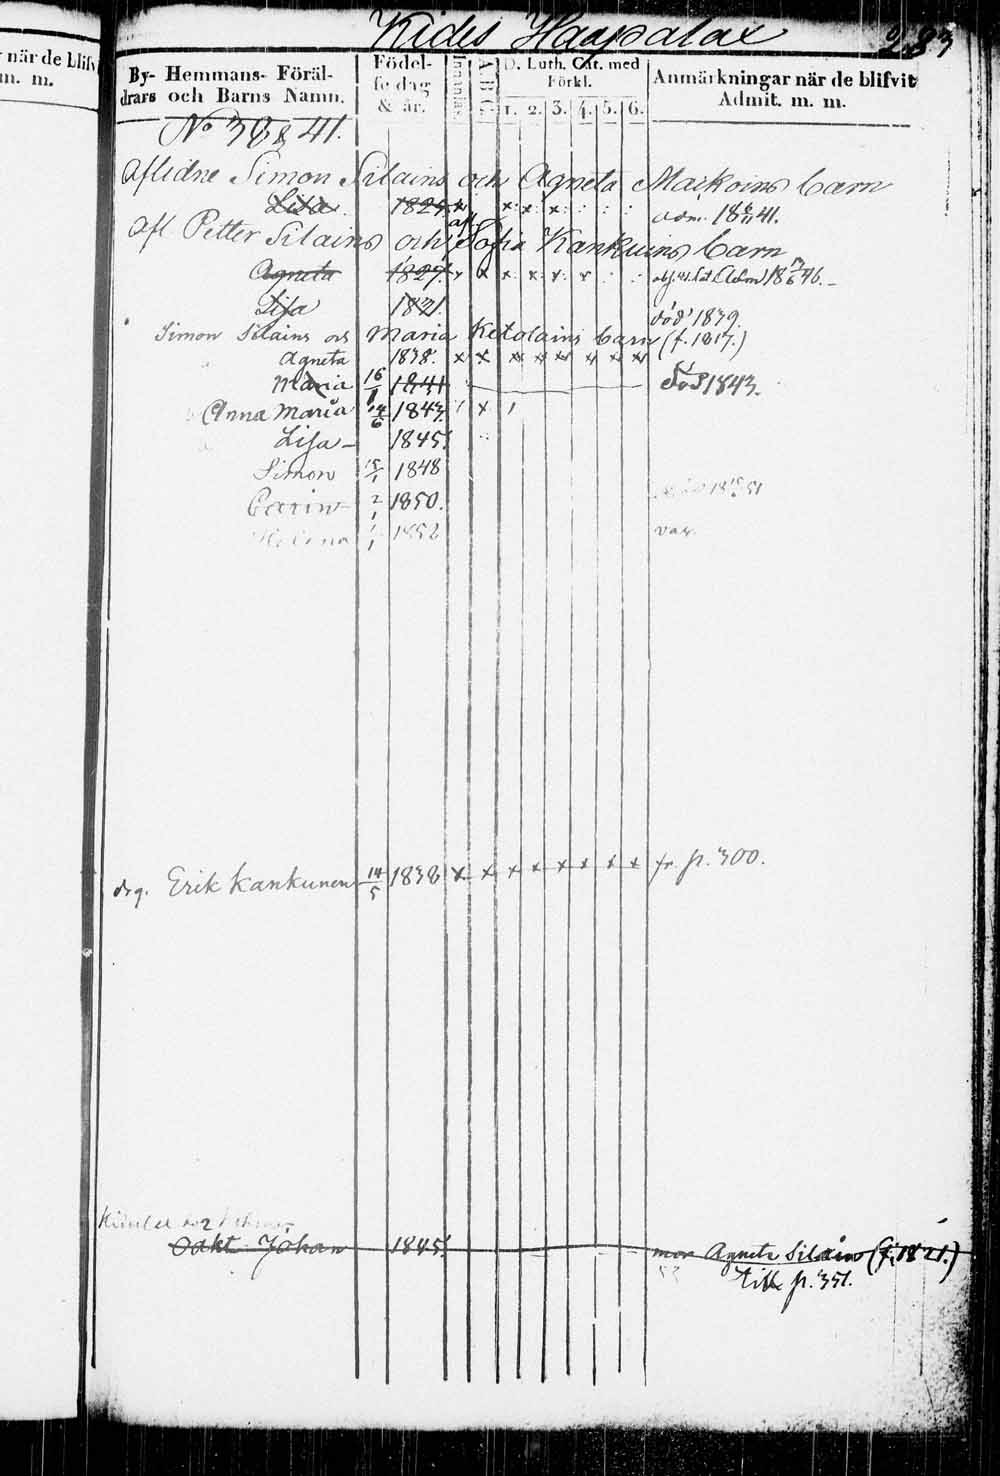 Kides Haapalax 283
när de blifvit
m. m.
By- Hemmans- Föräldrars och Barns Namn.
Födelsedag & år.
Innanläs.
A.B.C.
D. Luth. Cat. med Förkl.
1. 2. 3. 4. 5. 6.
Anmärkningar när de blifvit Admit. m. m.
No 38 & 41.
Aflidne Simon Silains och Agneta Maikoins barn
Lisa 1824. x x x x adm. 18 6/11 41.
Afl Petter Silains och afl. Sofia Kankuins barn
Agneta 1827. x x x x x x 46.
Lisa 1831. död 1839.
Simon Silains och Maria Ketolains barn (f. 1817.)
Agneta 1838. x x x x x x x x
Maria 16/1 1841 död 1843.
Anna Maria 14/6 1843. x
Lisa 1845.
Simon 15/1 1848
Carin 2/1 1850. 51
Helena 1/1 1852 vac.
drg. Erik Kankunen 14/5 1838 x x x x x x x x fr p. 300.
oäkt Johan 1845. mor Agneta Silain (f. 1821.)
till p. 351.